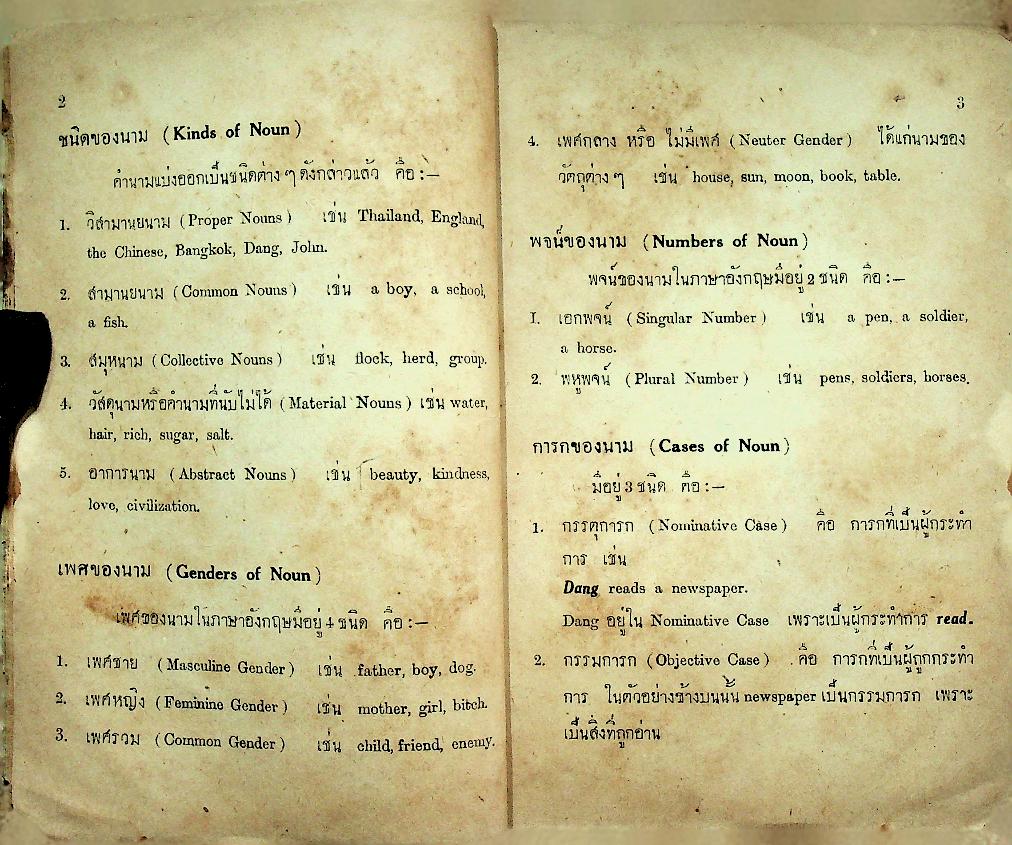 2
ชนิดของนาม (Kinds of Noun)
คำนามแบ่งออกเป็นชนิดต่าง ๆ ดังกล่าวแล้ว คือ :—
1. วิสามานยนาม (Proper Nouns) เช่น Thailand, England,
the Chinese, Bangkok, Dang, John.
2. สามานยนาม (Common Nouns) เช่น a boy, a school,
a fish.
3. สมุหนาม (Collective Nouns) เช่น flock, herd, group.
4. วัสดุนามหรือคำนามที่นับไม่ได้ (Material Nouns) เช่น water,
hair, rich, sugar, salt.
5. อาการนาม (Abstract Nouns) เช่น beauty, kindness,
love, civilization.
เพศของนาม (Genders of Noun)
เพศของนามในภาษาอังกฤษมีอยู่ 4 ชนิด คือ :—
1. เพศชาย (Masculine Gender) เช่น father, boy, dog.
2. เพศหญิง (Feminine Gender) เช่น mother, girl, bitch.
3. เพศรวม (Common Gender) เช่น child, friend, enemy.
3
4. เพศกลาง หรือ ไม่มีเพศ (Neuter Gender) ได้แก่นามของ
วัตถุต่าง ๆ เช่น house, sun, moon, book, table.
พจน์ของนาม (Numbers of Noun)
พจน์ของนามในภาษาอังกฤษมีอยู่ 2 ชนิด คือ :—
1. เอกพจน์ (Singular Number) เช่น a pen, a soldier,
a horse.
2. พหูพจน์ (Plural Number) เช่น pens, soldiers, horses.
การกของนาม (Cases of Noun)
มีอยู่ 3 ชนิด คือ :—
1. กรรตุการก (Nominative Case) คือ การกที่เป็นผู้กระทำ
การ เช่น
Dang reads a newspaper.
Dang อยู่ใน Nominative Case เพราะเป็นผู้กระทำการ read.
2. กรรมการก (Objective Case) คือ การกที่เป็นผู้ถูกกระทำ
การ ในตัวอย่างข้างบนนั้น newspaper เป็นกรรมการก เพราะ
เป็นสิ่งที่ถูกอ่าน